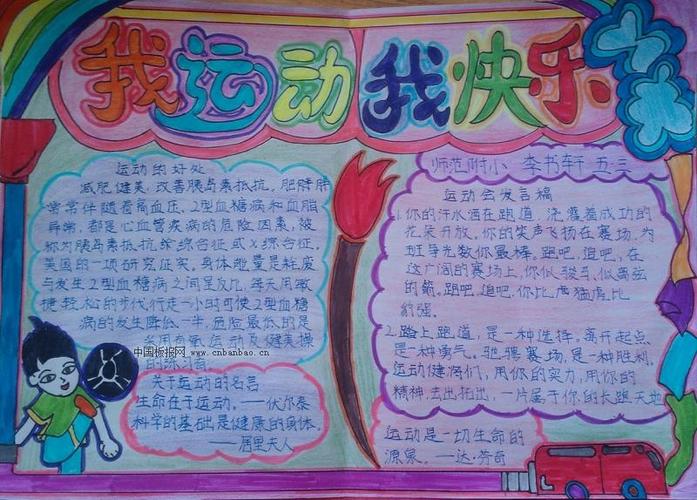 我运动我快乐
运动的好处
减肥健美。改善胰岛素抵抗。肥胖
常常伴随着高血压、2型血糖病和血脂
异常，都是心血管疾病的危险因素，被
称为胰岛素抵抗综合征或X综合征。
美国的一项研究证实。身体能量是耗废
与发生2型血糖病之间呈反比，每天用敏
捷轻松的步伐行走一小时可使2型血糖
病的发生降低一半，危险最低的是
有氧运动及健美操
的练习者。
中国板报网 www.cnbanbao.cn
关于运动的名言
生命在于运动。——伏尔泰
科学的基础是健康的身体。
——居里夫人
师范附小 李书轩 五.三
运动会发言稿
1.你的汗水洒在跑道，浇灌着成功的
花朵开放。你的笑声飞扬在赛场，为
班争光数你最棒。跑吧，追吧，在
这广阔的赛场上，你似骏马，似离弦
的箭。跑吧，追吧，你比虎猛虎比
豹强。
2.踏上跑道，是一种选择。离开起点
是一种勇气。驰骋赛场，是一种胜利。
运动健将们，用你的实力，用你的
精神，去出拓出，一片属于你的长跑天地
运动是一切生命的
源泉。—达·芬奇